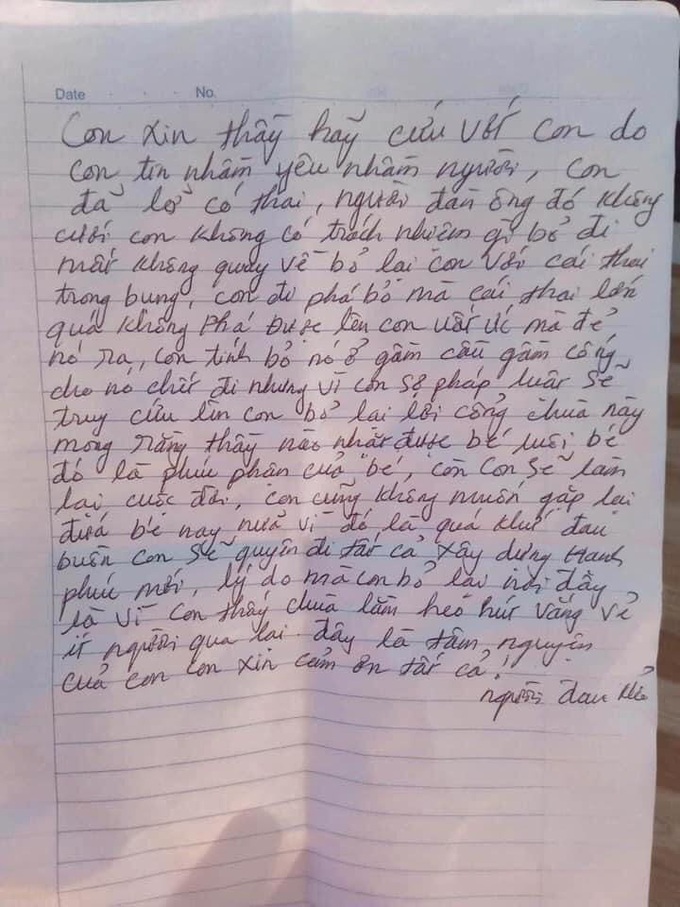 Date No.
Con xin thầy hãy cứu vớt con do
con tin nhầm yêu nhầm người, con
đã lở có thai, người đàn ông đó không
cưới con không có trách nhiệm gì bỏ đi
mất không quay về bỏ lại con với cái thai
trong bụng, con đi phá bỏ mà cái thai lớn
quá không phá được lên con uất ức mà đẻ
nó ra, con tính bỏ nó ở gầm cầu gầm cống
cho nó chết đi nhưng vì con sợ pháp luật sẽ
truy cứu lên con bỏ lại lối cổng chùa này
mong rằng thầy nào nhặt được bé nuôi bé
đó là phúc phận của bé, còn con sẽ làm
lại cuộc đời, con cũng không muốn gặp lại
đứa bé nay nửa vì đó là quá khứ đau
buồn con sẽ quyên đi tất cả xây dựng Hạnh
phúc mới, lý do mà con bỏ lại nơi đây
là vì con thấy chùa lằm héo hút vắng vẻ
ít người qua lại. đây là tâm nguyện
của con con xin cảm ơn tất cả!
người đau khổ